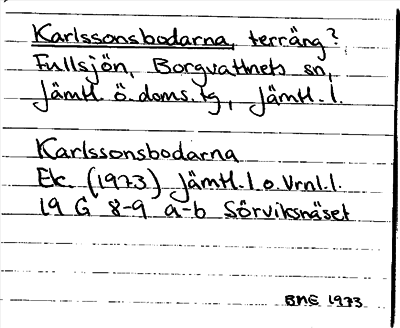 Karlssonsbodarna, terräng?
Fullsjön, Borgvattnets sn,
Jämtl. ö. doms. tg, Jämtl. l.
Karlssonsbodarna
Ek. (1973) Jämtl. l. o. Vrnl. l.
19 G 8-9 a-b Sörviksnäset
BME 1973